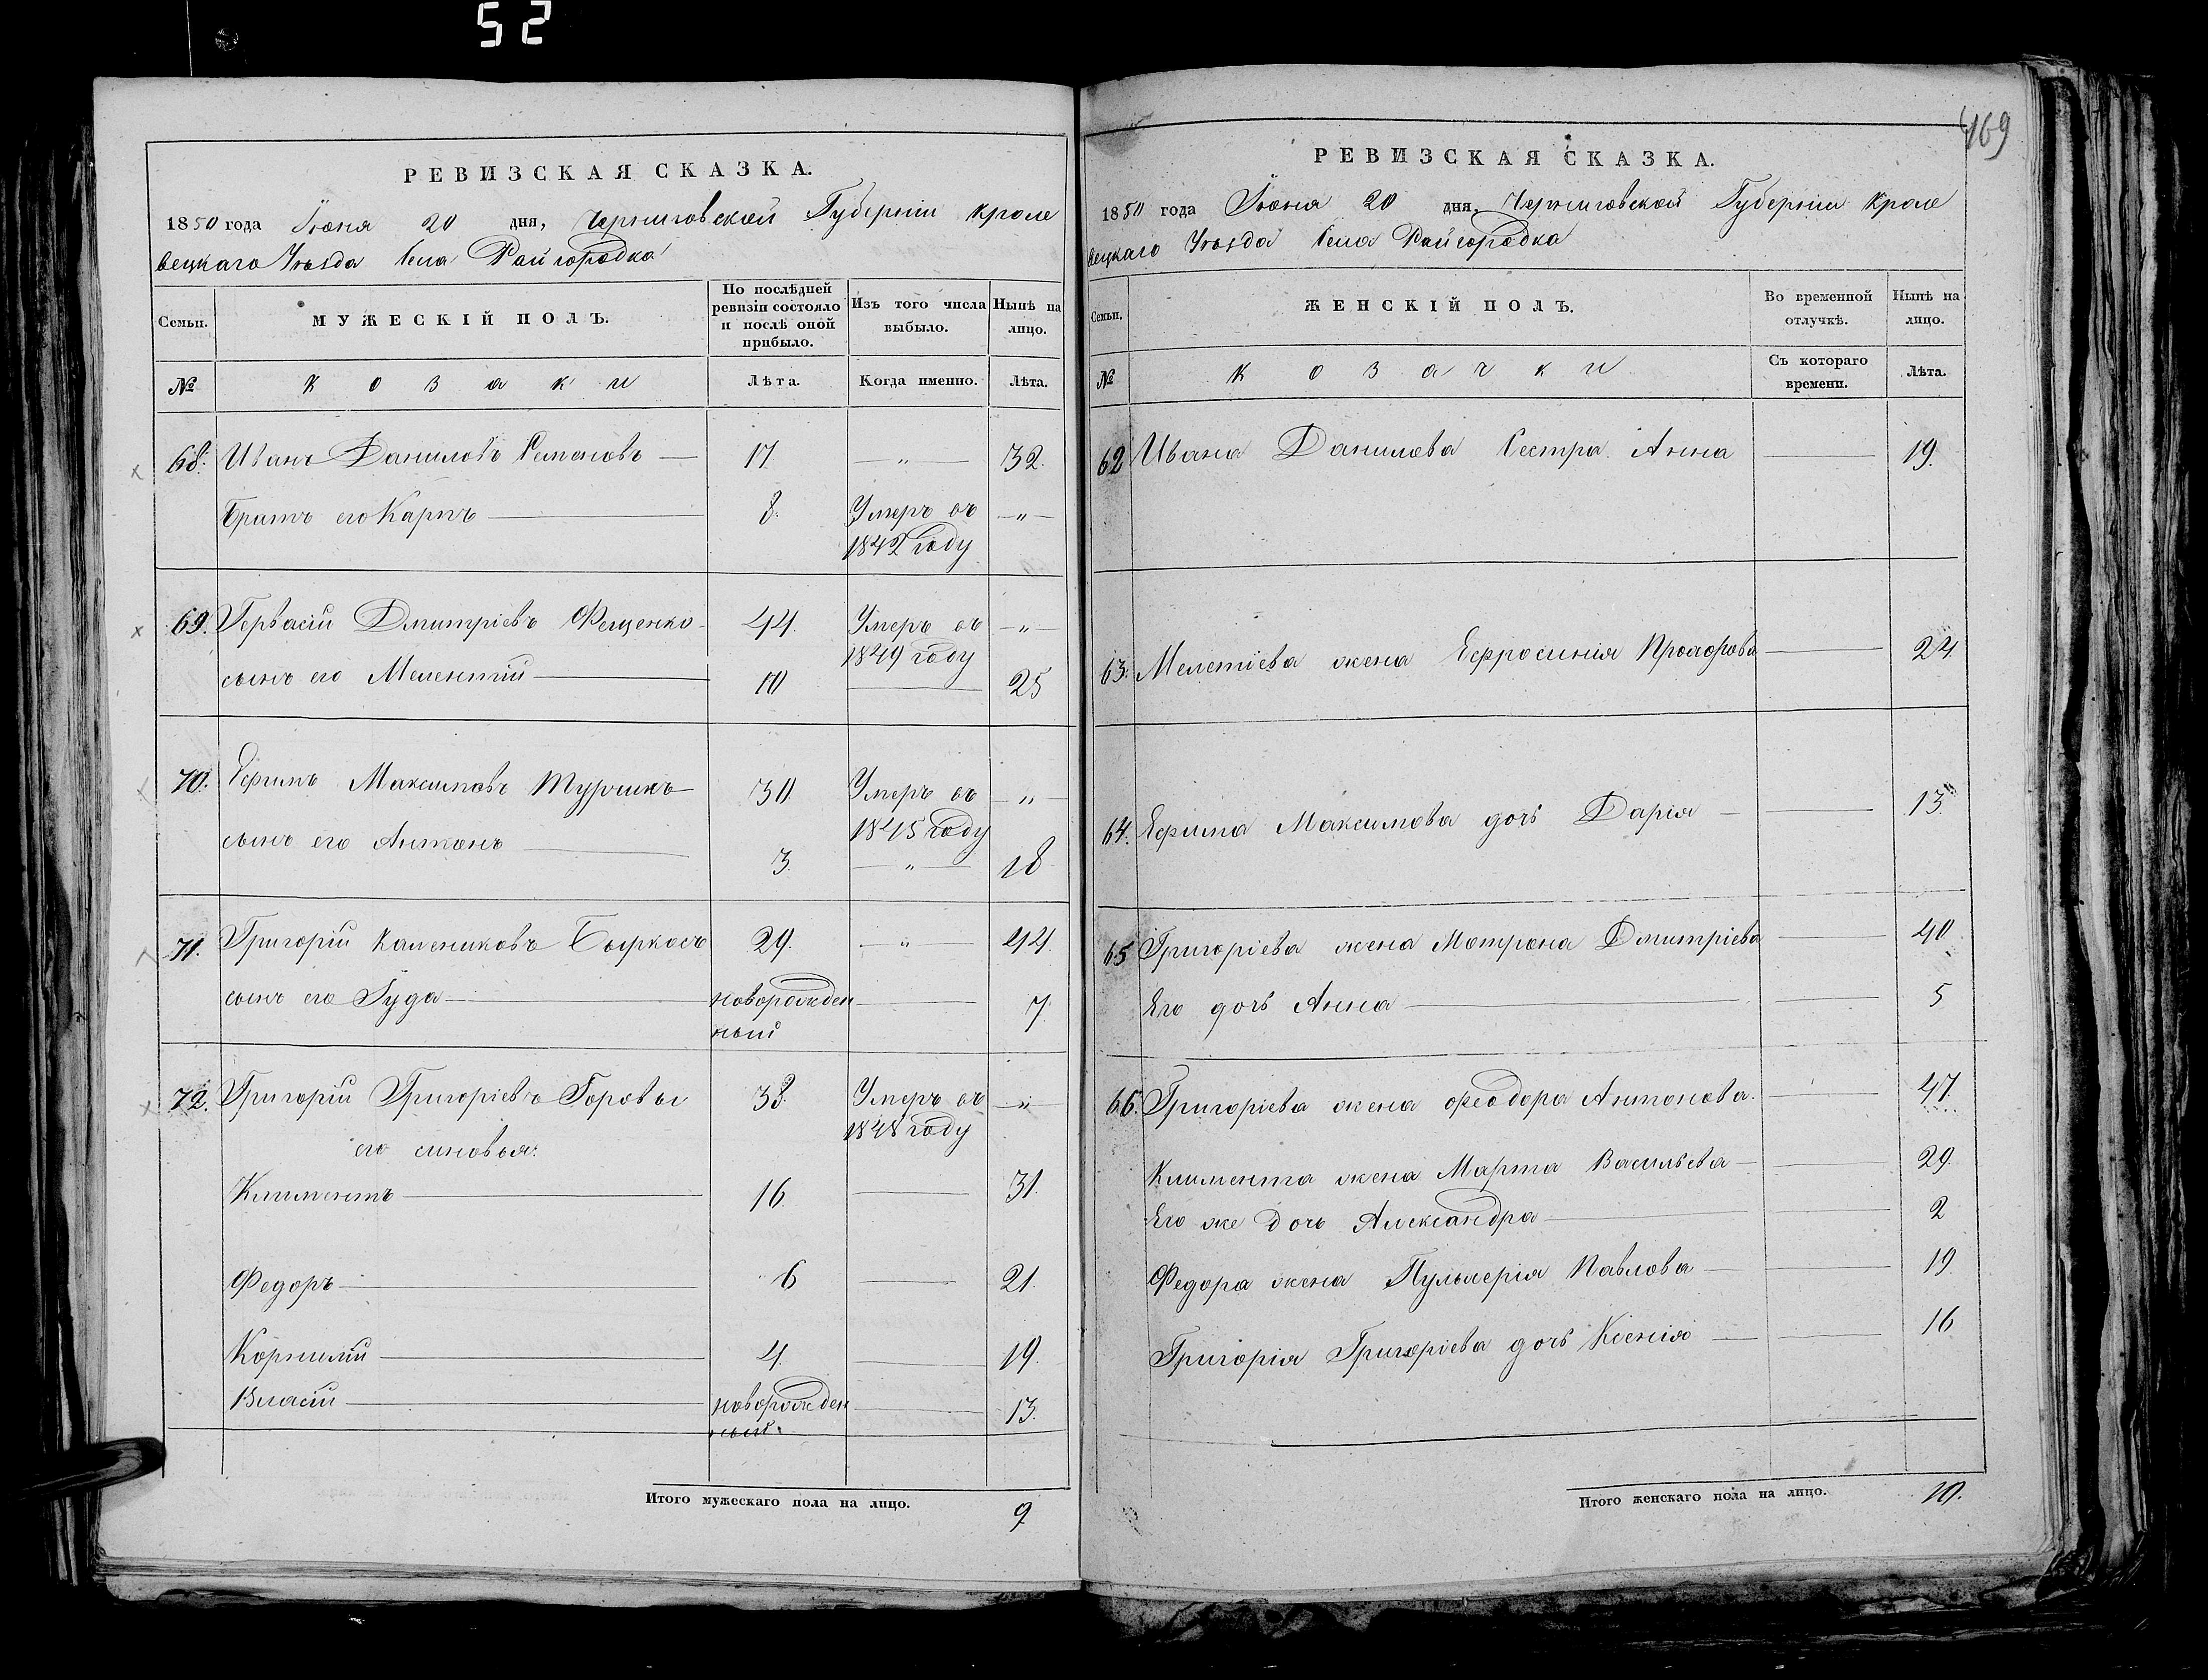 52
РЕВИЗСКАЯ СКАЗКА.
1850 года Іюня 20 дня, Черниговской Губерніи Кроле
вецкаго Уѣзда Села Райгородка
Семьи.
МУЖЕСКІЙ ПОЛЪ.
По послѣдней ревизіи состояло и послѣ оной прибыло.
Изъ того числа выбыло.
Нынѣ на лицо.
№ Козаки Лѣта. Когда именно. Лѣта.
68. Иванъ Даниловъ Семеновъ — 17 „ — 32.
Братъ его Карпъ — 8. Умеръ въ — „ —
1842 году
69. Гервасій Дмитріевъ Фещенко 44. Умеръ въ — „ —
1849 году
сынъ его Мелентій — 10 — 25
70. Ефимъ Максимовъ Турчинъ 30. Умеръ въ — „ —
1845 году
сынъ его Антонъ — 3. „ — 18
71. Григорій Калениковъ 29. — „ — 44.
сынъ его Іуда — новорожден — 7.
ный
72. Григорій Григоріевъ Горовы 38. Умеръ въ — „ —
1848 году
его синовья:
Климентъ — 16. — 31.
Федоръ — 6 — 21.
Корнилій — 4. — 19.
Власій — новорожден — 13.
ный.
Итого мужескаго пола на лицо. 9
469
РЕВИЗСКАЯ СКАЗКА.
1850 года Іюня 20 дня, Черниговской Губерніи Кроле
вецкаго Уѣзда Села Райгородка
Семьи.
ЖЕНСКІЙ ПОЛЪ.
Во временной отлучкѣ.
Нынѣ на лицо.
№ Козачки Съ котораго времени. Лѣта.
62 Ивана Данилова Сестра Анна — 19.
63. Мелетіева жена Ефросинія Прохорова — 24.
64. Ефима Максимова дочь Дарія — 13.
65 Григоріева жена Мотрона Дмитріева — 40
Его дочь Анна — 5
66. Григоріева жена Феодора Антонова. — 47.
Климента жена Марта Васильева — 29.
Его же дочь Александра — 2
Федора жена Пульхерія Павлова — 19
Григорія Григоріева дочь Ксенія — 16
Итого женскаго пола на лицо. 10.